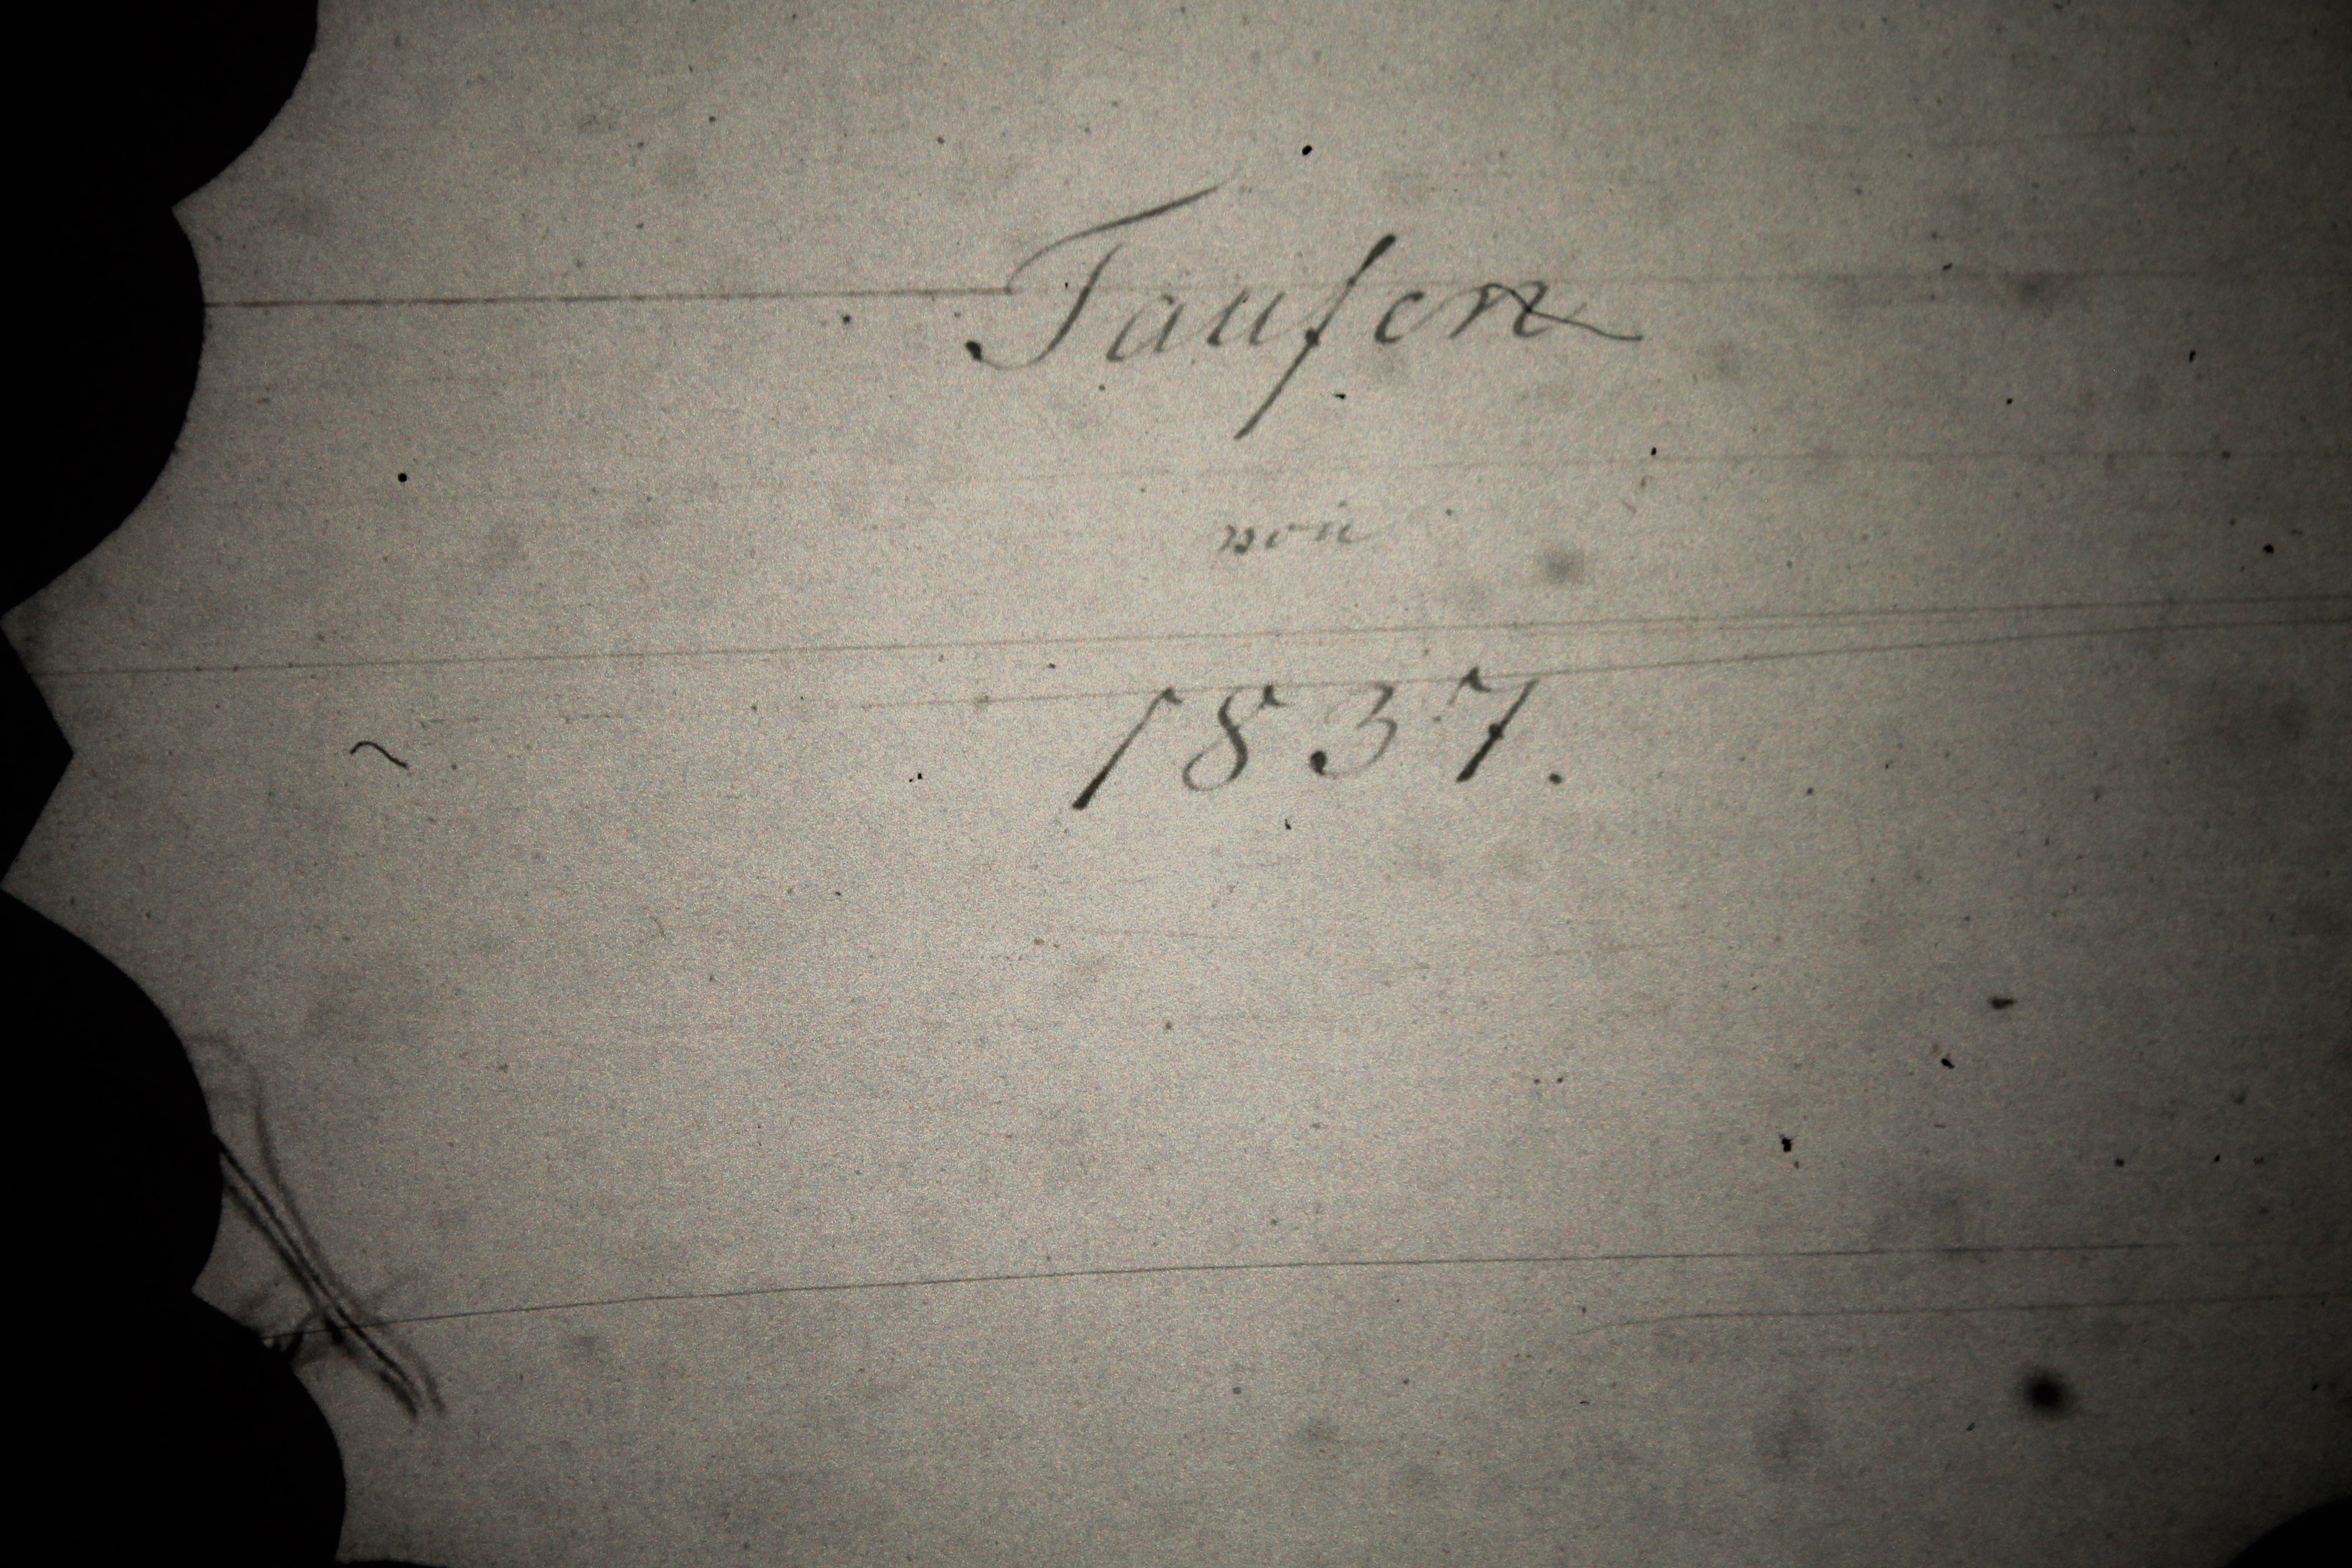 Taufen
von
1837.